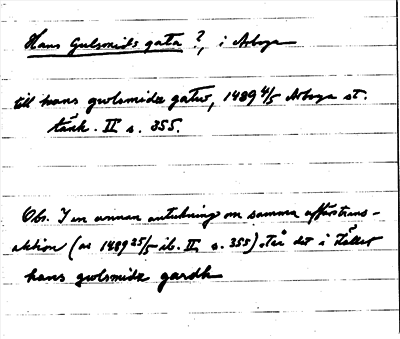 Hans Gulsmids gata ?, i Arboga
till hans gwlsmidz gatw, 1489 4/5 Arboga st.
tänk. II s. 355.
Obs. I en annan anteckning om samma affärstrans-
aktion (av 1489 25/5 ib. II, s. 355). står det i stället
hans gwlsmidz gardh